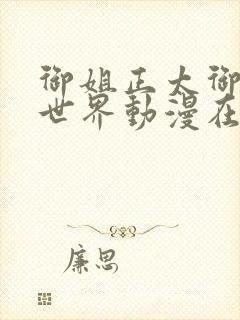 御姐正太御
世界動漫在
廉思